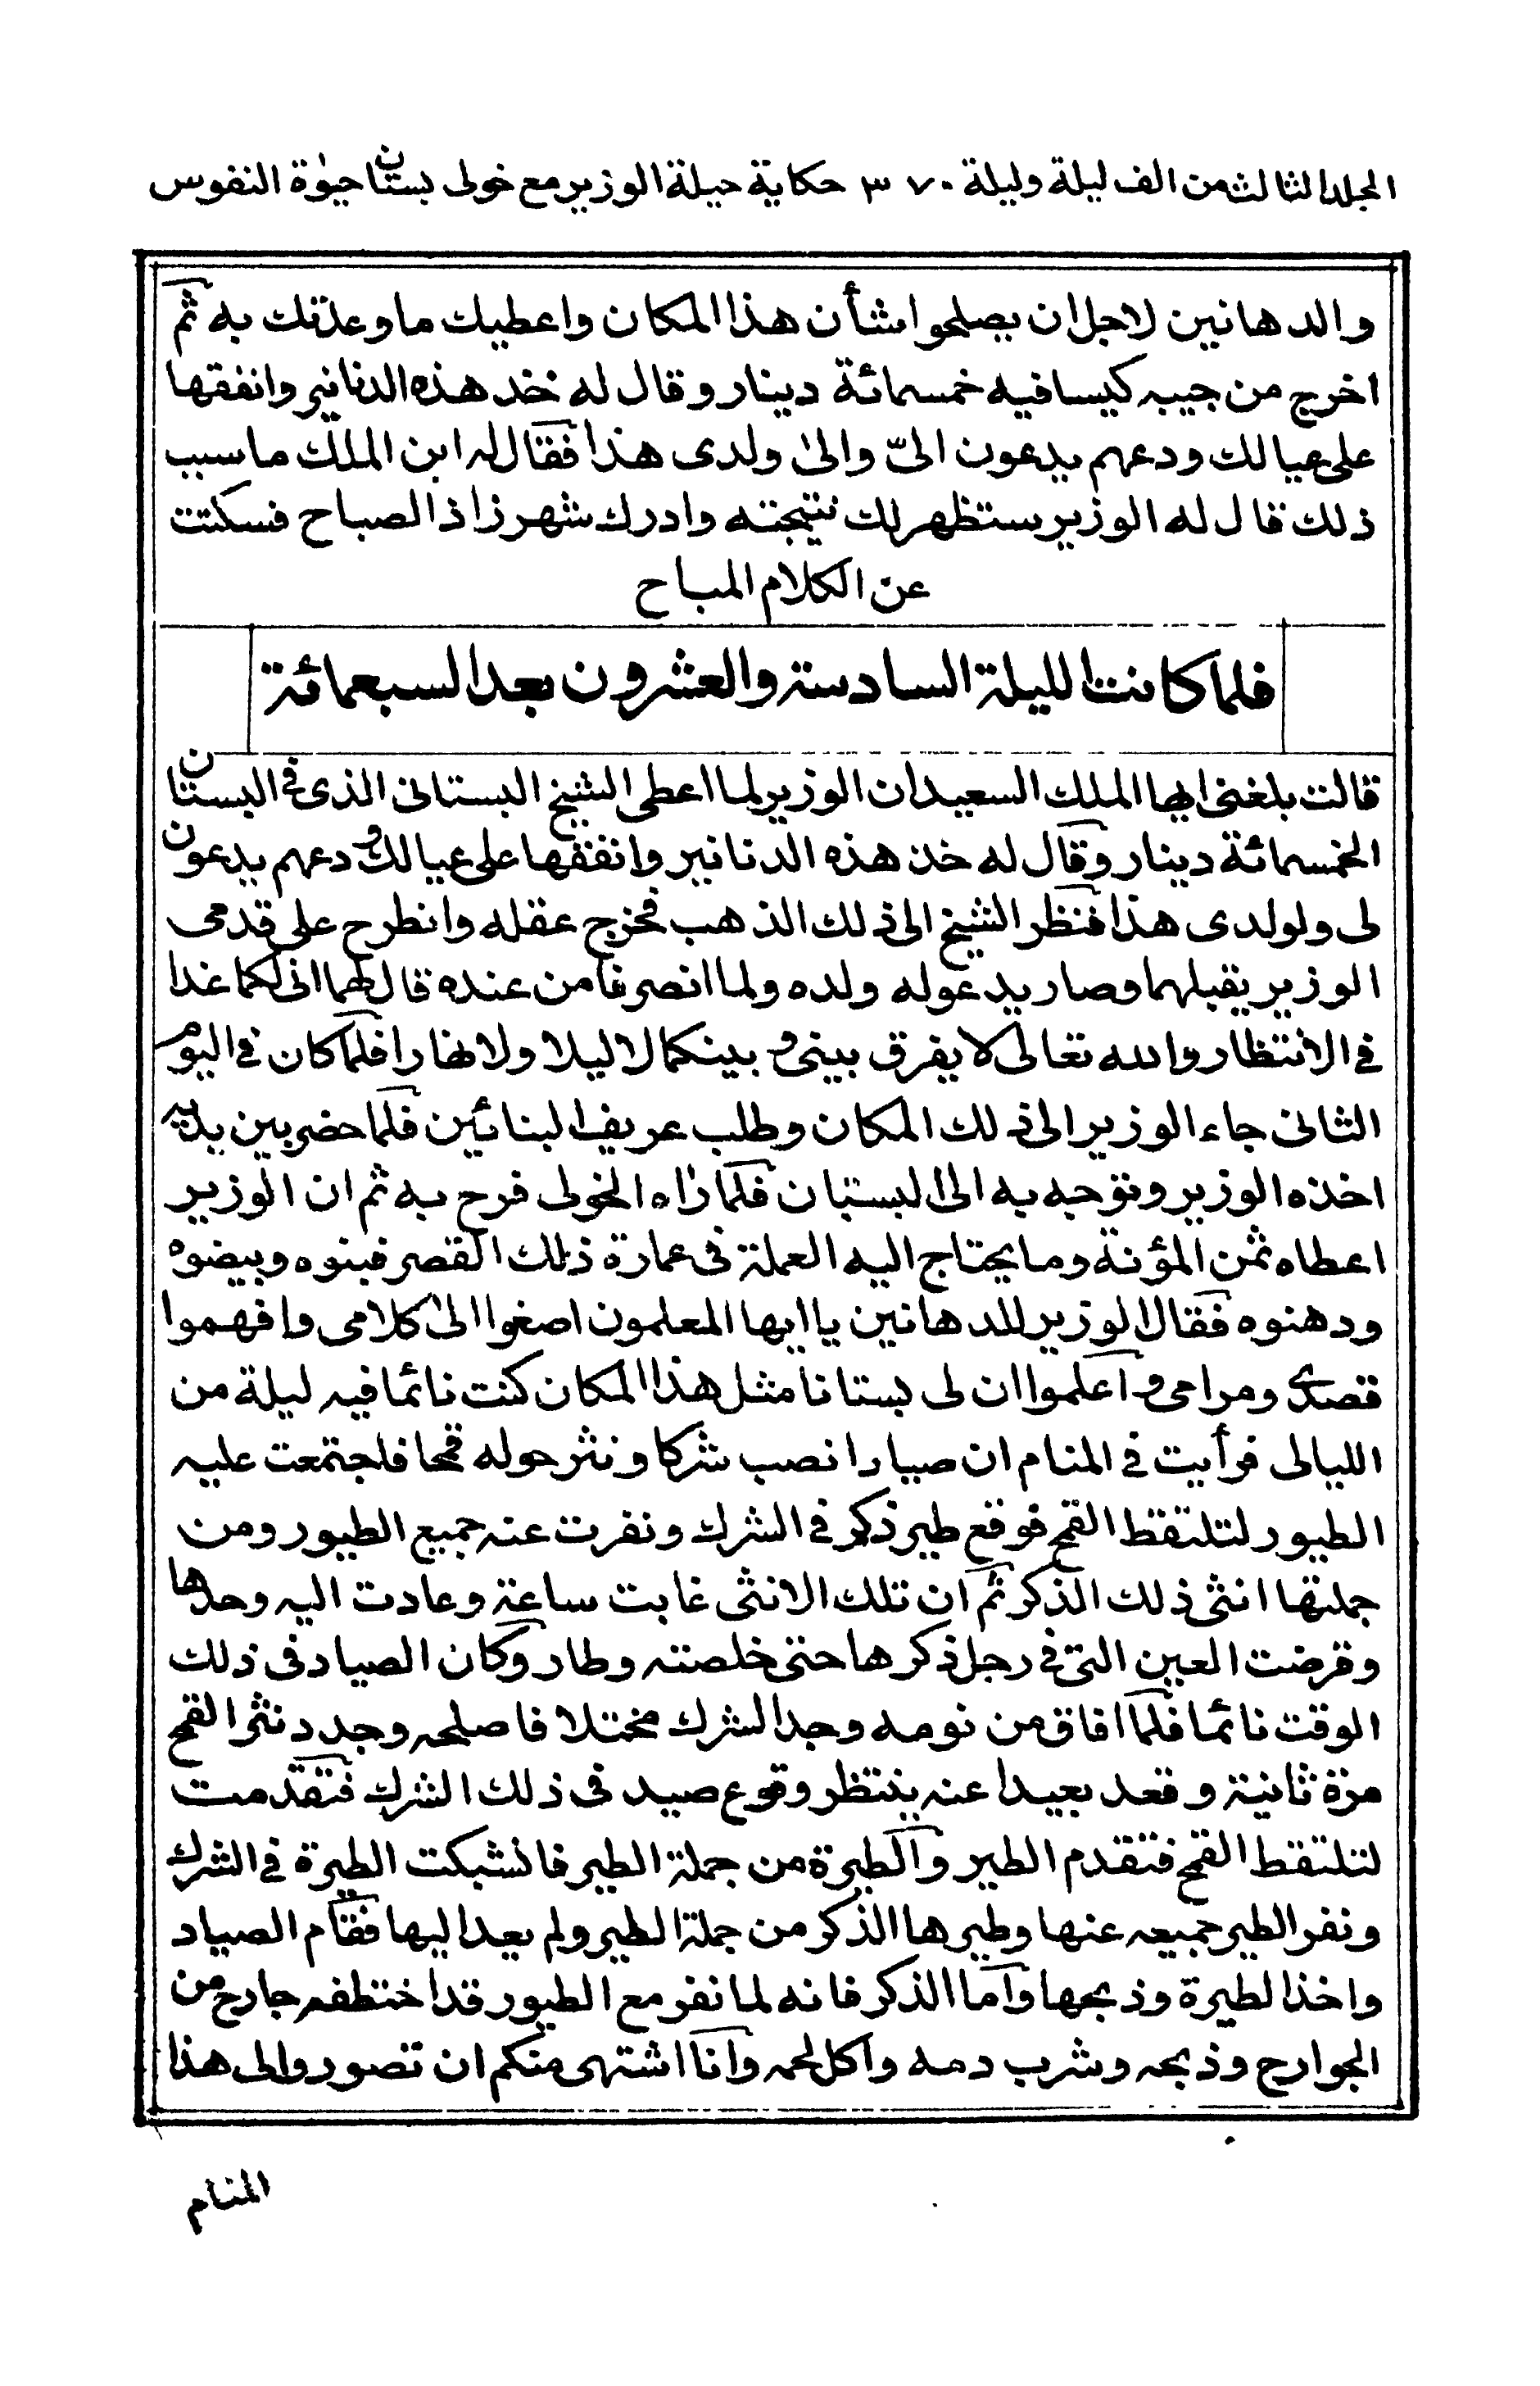 المجلد الثالث من الف ليلة وليلة ٣٧٠ حكاية حيلة الوزير مع خولى بستان حيوٰة النفوس
والدهانين لاجل ان يصلحوا شأن هذا المكان واعطيك ما وعدتك به ثم
اخرج من جيبه كيسا فيه خمسمائة دينار وقال له خذ هذه الدنانير وانفقها
على عيالك ودعهم يدعون الىّ والىٰ ولدى هذا فقال له ابن الملك ما سبب
ذلك قال له الوزير ستظهر لك نتيجته وادرك شهرزاذ الصباح فسكتت
عن الكلام المباح
فلما كانت الليلة السادسة والعشرون بعد السبعمائة
قالت بلغنى ايها الملك السعيد ان الوزير لما اعطى الشيخ البستانى الذى فى البستان
الخمسمائة دينار وقال له خذ هذه الدنانير وانفقها على عيالك ودعهم يدعون
لى ولولدى هذا فنظر الشيخ الى ذلك الذهب فخرج عقله وانطرح على قدمى
الوزير يقبلهما وصار يدعو له ولده ولما انصرفا من عنده قال لهما انى لكما غدا
فى الانتظار والله تعالى لا يفرق بينى و بينكما لا ليلا ولا نهارا فلما كان فى اليوم
الثانى جاء الوزير الى ذلك المكان وطلب عريف البنائين فلما حضر بين يديه
اخذه الوزير وتوجه به الى البستان فلما رٰاه الخولى فرح به ثم ان الوزير
اعطاه ثمن المؤنة وما يحتاج اليه العملة فى عمارة ذلك القصر فبنوه وبيضوه
ودهنوه فقال الوزير للدهانين يا ايها المعلمون اصغوا الىٰ كلامى وافهموا
قصدى ومرامى و اعلموا ان لى بستانا مثل هذا المكان كنت نائما فيه ليلة من
الليالى فرأيت فى المنام ان صيادا نصب شركا ونثر حوله قمحا فاجتمعت عليه
الطيور لتلتقط القمح فوقع طير ذكر فى الشرك ونفرت عنه جميع الطيور ومن
جملتها انثى ذلك الذكر ثم ان تلك الانثى غابت ساعة وعادت اليه وحدها
وقرضت العين التى فى رجل ذكرها حتى خلصته وطار وكان الصياد فى ذلك
الوقت نائما فلما افاق من نومه وجد الشرك مختلا فاصلحه وجدد نثر القمح
مرة ثانية وقعد بعيدا عنه ينتظر وقوع صيد فى ذلك الشرك فتقدمت
لتلتقط القمح فتقدم الطير والطيرة من جملة الطير فانشبكت الطيرة فى الشرك
ونفر الطير جميعه عنها وطيرها الذكر من جملة الطير ولم يعد اليها فقام الصياد
واخذ الطيرة وذبحها واما الذكر فانه لما نفر مع الطيور قد اختطفه جارح من
الجوارح وذبحه وشرب دمه واكل لحمه وانا اشتهى منكم ان تصوروا لى هذا
المنام